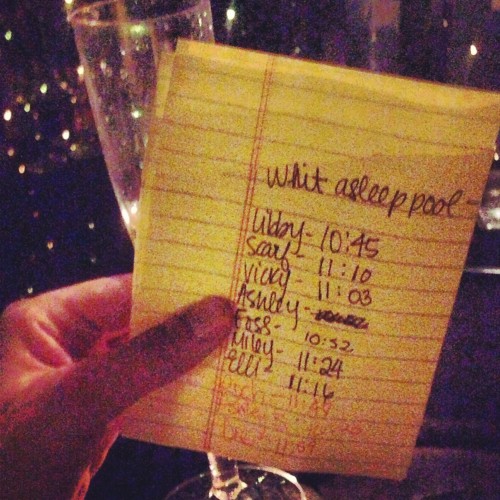 Whit asleep pool -
Libby - 10:45
Scary - 11:10
Vicky - 11:03
Ashley -
Foss - 10:52
Miley - 11:24
Elli - 11:16
11:47
11:09